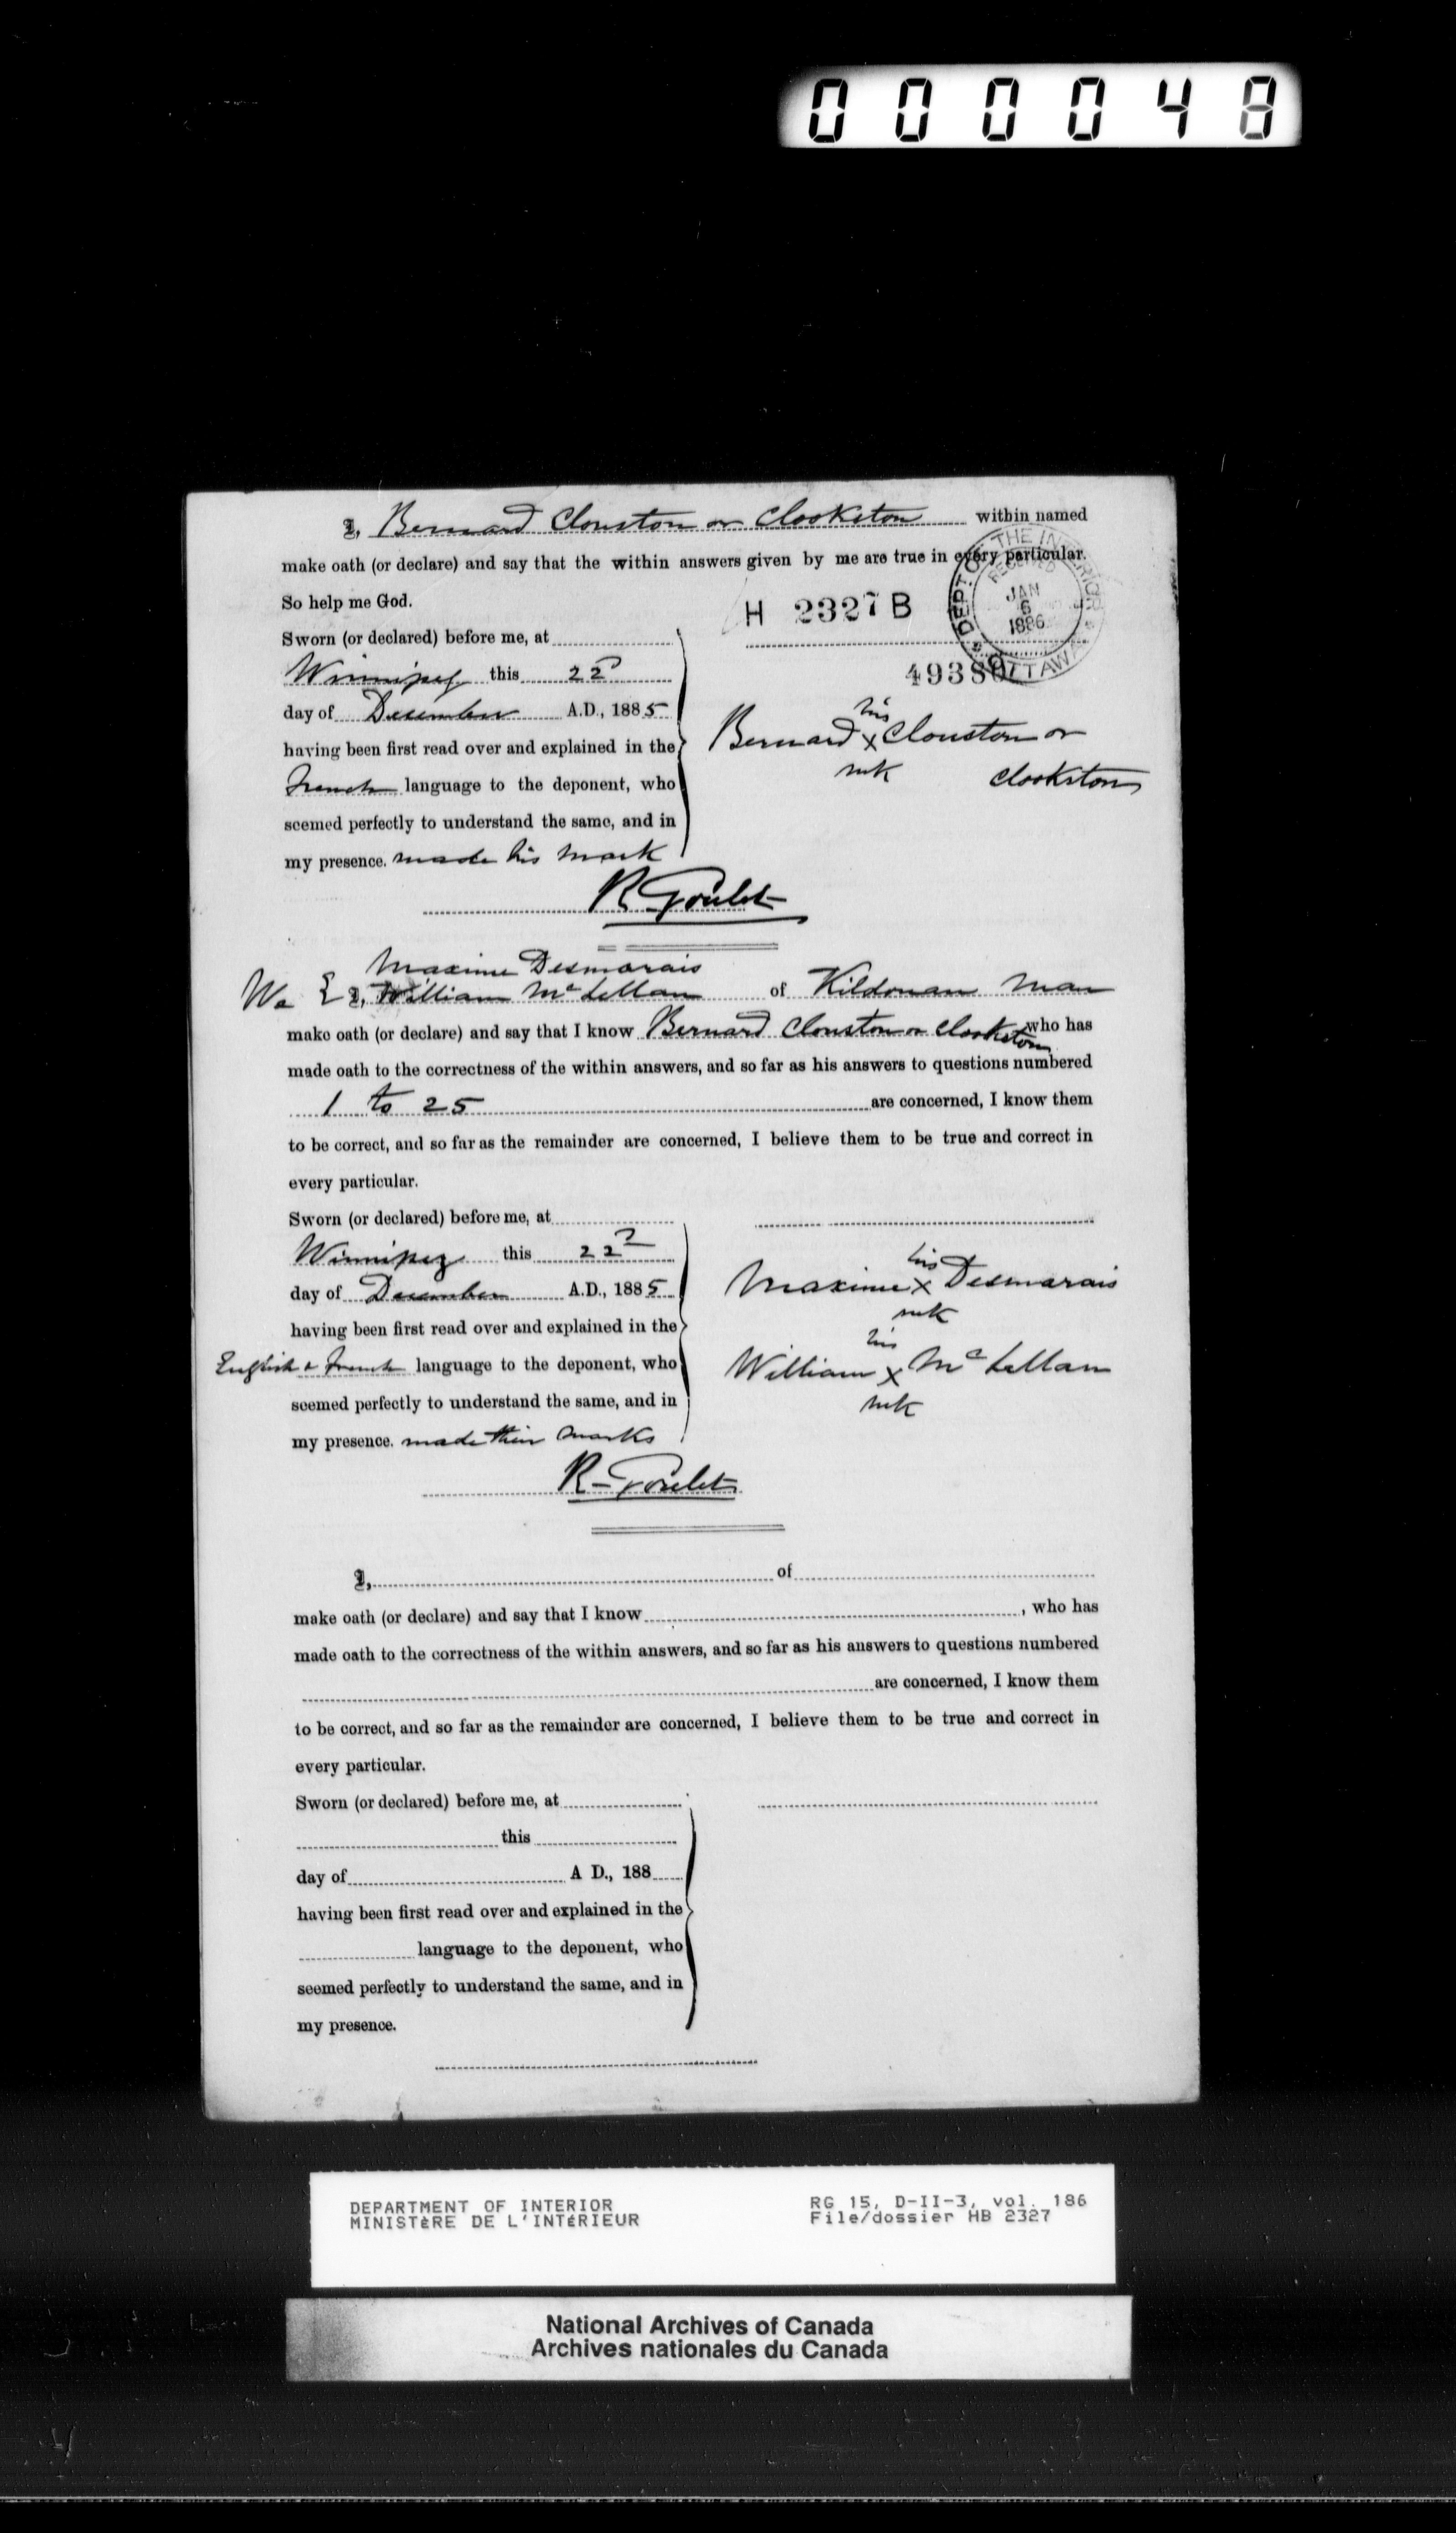 000048
I, Bernard Clouston or Clookston within named
make oath (or declare) and say that the within answers given by me are true in every particular.
So help me God.
H 2327 B
DEPT. OF THE INTERIOR
RECEIVED
JAN
6
1886
OTTAWA
Sworn (or declared) before me, at
49380
Winnipeg this 22
day of December A.D., 1885
having been first read over and explained in the
French language to the deponent, who
seemed perfectly to understand the same, and in
my presence. made his mark
his
Bernard x Clouston or
mk Clookston
R Goulet
Maxime Desmarais
We & I, William Mc Lellan of Kildonan Man
make oath (or declare) and say that I know Bernard Clouston or Clookston who has
made oath to the correctness of the within answers, and so far as his answers to questions numbered
1 to 25 are concerned, I know them
to be correct, and so far as the remainder are concerned, I believe them to be true and correct in
every particular.
Sworn (or declared) before me, at
Winnipeg this 22
day of December A.D., 1885
having been first read over and explained in the
English & French language to the deponent, who
seemed perfectly to understand the same, and in
my presence. made their marks
his
Maxime x Desmarais
mk
his
William x Mc Lellan
mk
R Goulet
I, of
make oath (or declare) and say that I know , who has
made oath to the correctness of the within answers, and so far as his answers to questions numbered
are concerned, I know them
to be correct, and so far as the remainder are concerned, I believe them to be true and correct in
every particular.
Sworn (or declared) before me, at
this
day of A D., 188
having been first read over and explained in the
language to the deponent, who
seemed perfectly to understand the same, and in
my presence.
DEPARTMENT OF INTERIOR
MINISTèRE DE L'INTéRIEUR
RG 15, D-II-3, vol. 186
File/dossier HB 2327
National Archives of Canada
Archives nationales du Canada